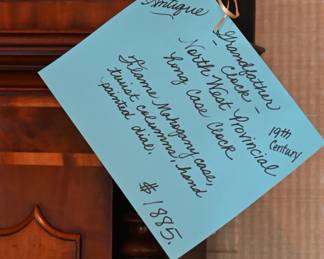 Antique
Grandfather
- Clock -
19th
Century
North West Provincial
Long Case Clock
Flame Mahogany case,
twist columns, hand
painted dial.
$1885.